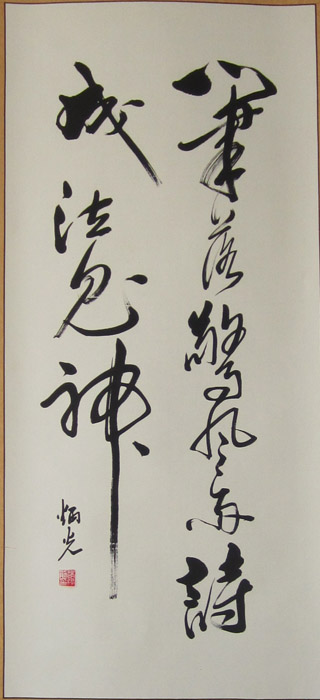 筆落驚風雨詩
成泣鬼神
炳光